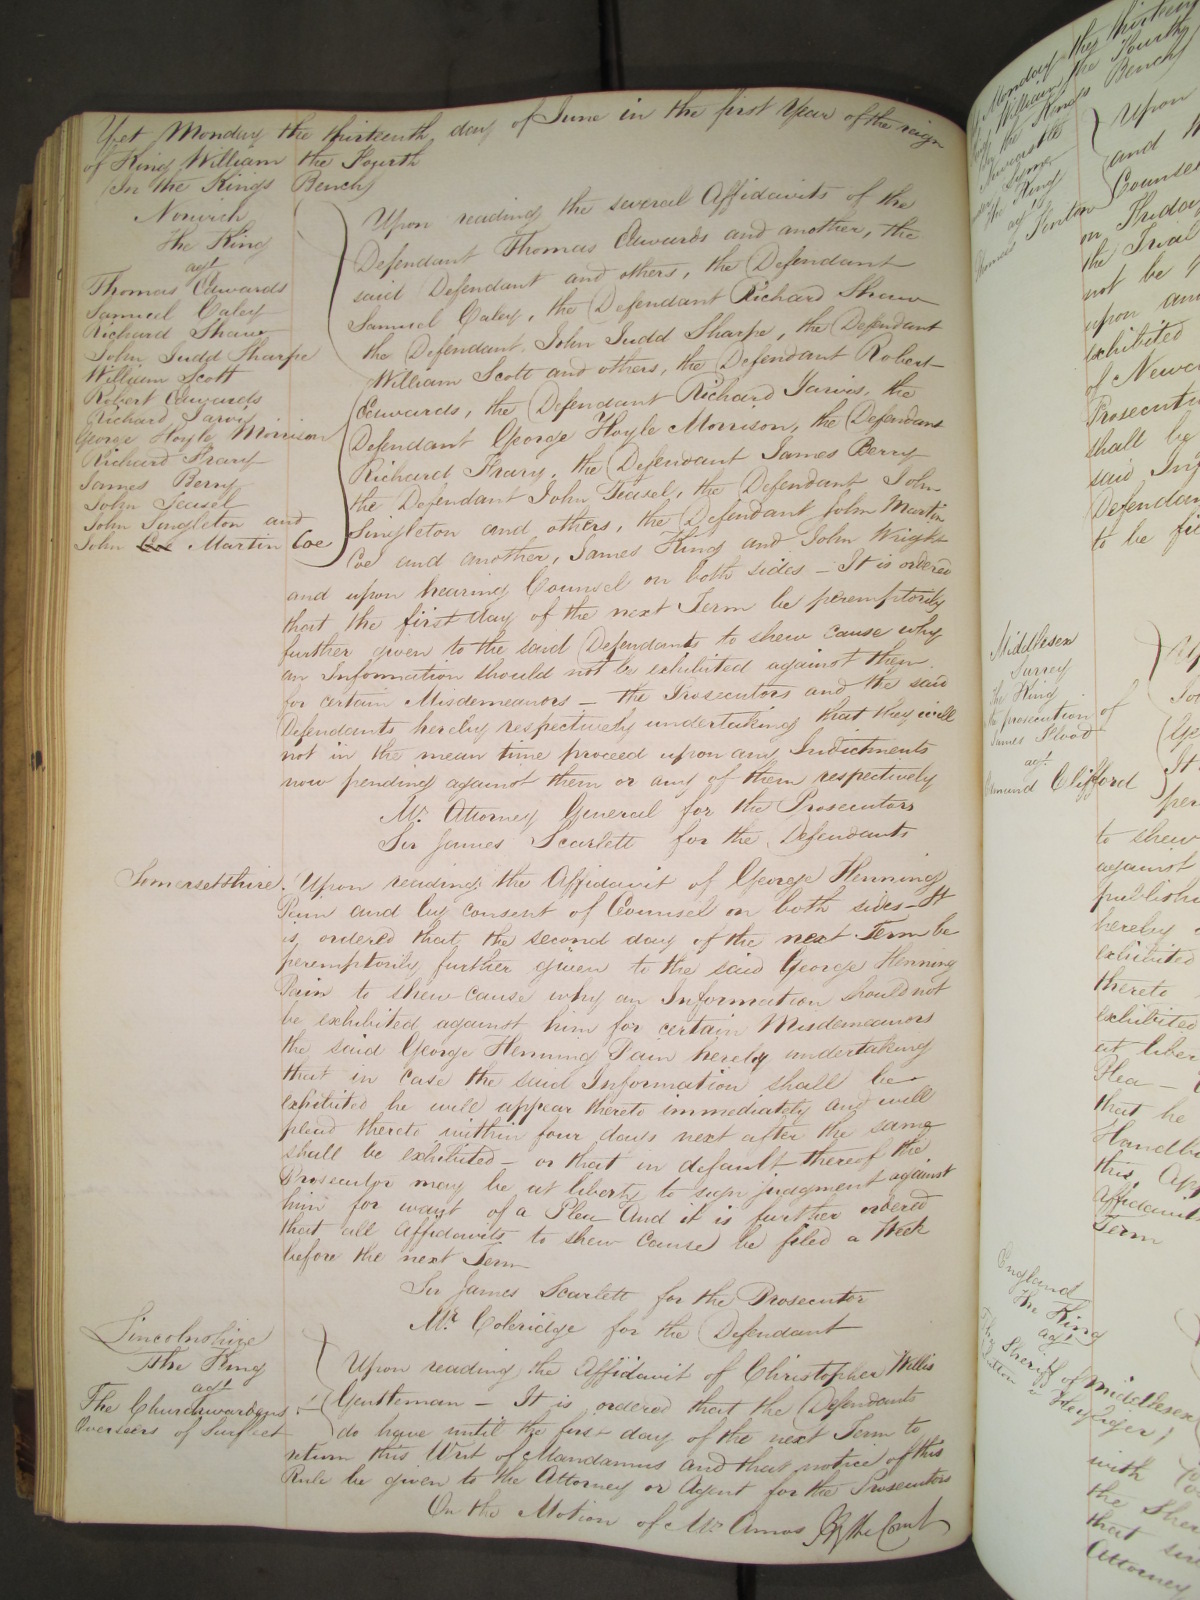 Yet Monday the thirteenth day of June in the first Year of the reign
of King William the Fourth
In the Kings Bench
Norwich
The King
agt
Thomas Edwards
Samuel Caley
Richard Shaw
John Judd Sharpe
William Scott
Robert Edwards
Richard Jarvis
George Hoyle Morrison
Richard Frary
James Berry
John Teasel
John Singleton and
John Coe Martin Coe
Upon reading the several Affidavits of the
Defendant Thomas Edwards and another, the
said Defendant and others, the Defendant
Samuel Caley, the Defendant Richard Shaw
the Defendant John Judd Sharpe, the Defendant
William Scott and others, the Defendant Robert
Edwards, the Defendant Richard Jarvis, the
Defendant George Hoyle Morrison, the Defendant
Richard Frary, the Defendant James Berry
the Defendant John Teasel, the Defendant John
Singleton and others, the Defendant John Martin
Coe and another, James King and John Wright
and upon hearing Counsel on both sides – It is ordered
that the first day of the next Term be peremptorily
further given to the said Defendants to shew cause why
an Information should not be exhibited against them
for certain Misdemeanors – the Prosecutors and the said
Defendants hereby respectively undertaking that they will
not in the mean time proceed upon any Indictments
now pending against them or any of them respectively
Mr. Attorney General for the Prosecutors
Sir James Scarlett for the Defendants
Somersetshire. Upon reading the Affidavit of George Henning
Pain and by consent of Counsel on both sides – It
is ordered that the second day of the next Term be
peremptorily further given to the said George Henning
Pain to shew cause why an Information should not
be exhibited against him for certain Misdemeanors
the said George Henning Pain hereby undertaking
that in case the said Information shall be
exhibited he will appear thereto immediately and will
plead thereto within four days next after the same
shall be exhibited – or that in default thereof the
Prosecutor may be at liberty to sign judgment against
him for want of a Plea And it is further ordered
that all Affidavits to shew cause be filed a Week
before the next Term
Sir James Scarlett for the Prosecutor
Mr. Coleridge for the Defendant
Lincolnshire
The King
agt
The Churchwardens &
Overseers of Surfleet
Upon reading the Affidavit of Christopher Willis
Gentleman – It is ordered that the Defendants
do have until the first day of the next Term to
return this Writ of Mandamus and that notice of this
Rule be given to the Attorney or Agent for the Prosecutors
On the Motion of Mr. Amos By the Court
Monday the thirteenth
of William the Fourth
In the Kings Bench
Newcastle
The King
agt
Upon
and
Counsel
on Friday
the Trial
not be
upon an
exhibited
of Newc
Prosecuti
shall be
said Inf
Defendan
to be fi
Middlesex
Surrey
The King
the prosecution of
James Flood
agt.
Edmund Clifford
It
per
to shew
against
publishi
hereby
exhibited
thereto
exhibited
at liber
Plea –
that he
Handbi
this
Affidavits
Term
England
The King
agt
The Sheriff of Middlesex
with
the Sher
that
Attorney